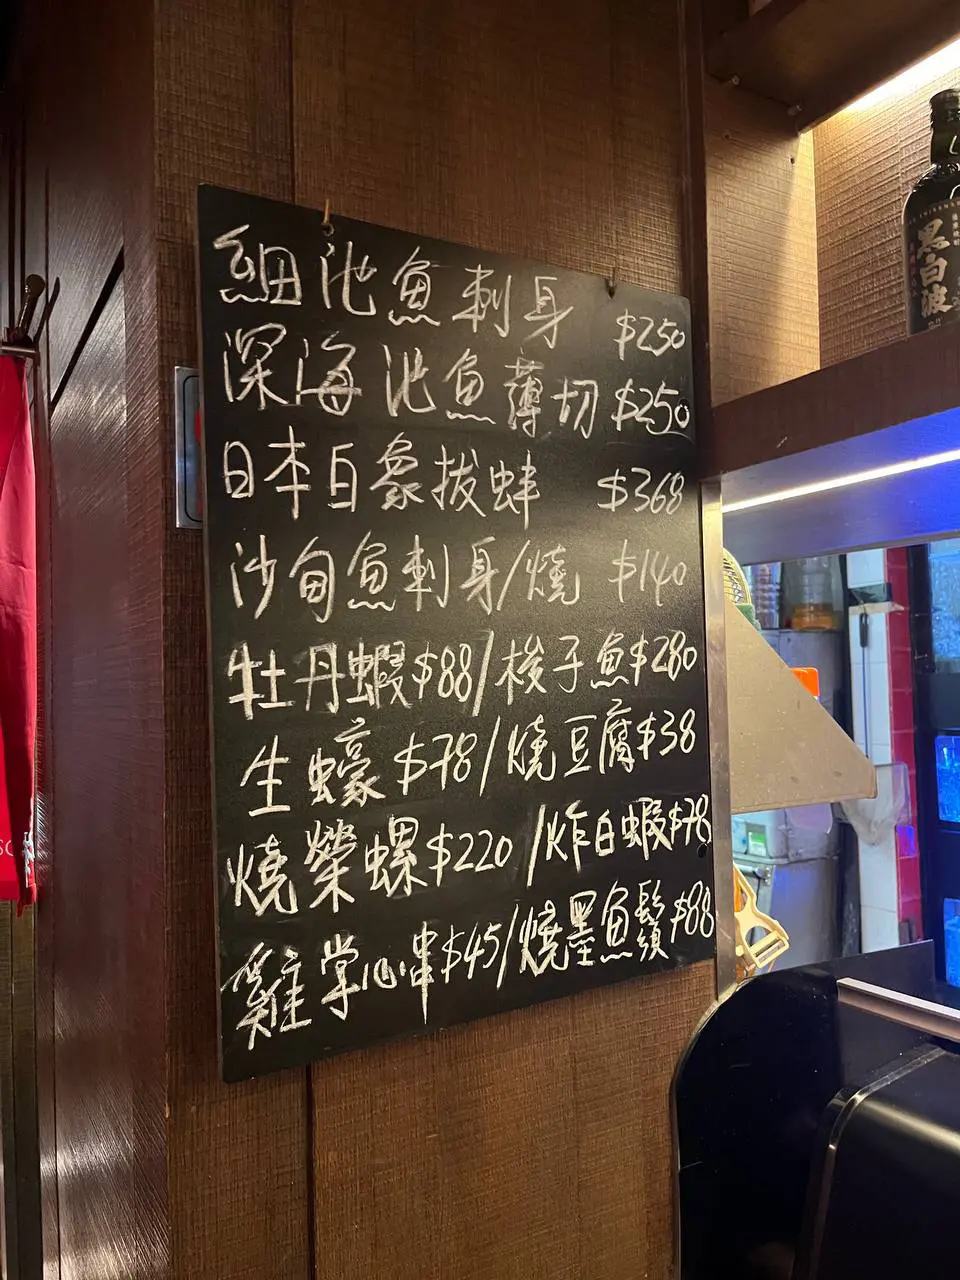 細池魚刺身 $250
深海池魚薄切 $250
日本白象拔蚌 $368
沙甸魚刺身/燒 $140
牡丹蝦$88/梭子魚$280
生蠔$78/燒豆腐$38
燒榮螺$220/炸白蝦$78
雞掌心串$45/燒墨魚鬚$88
黒白波